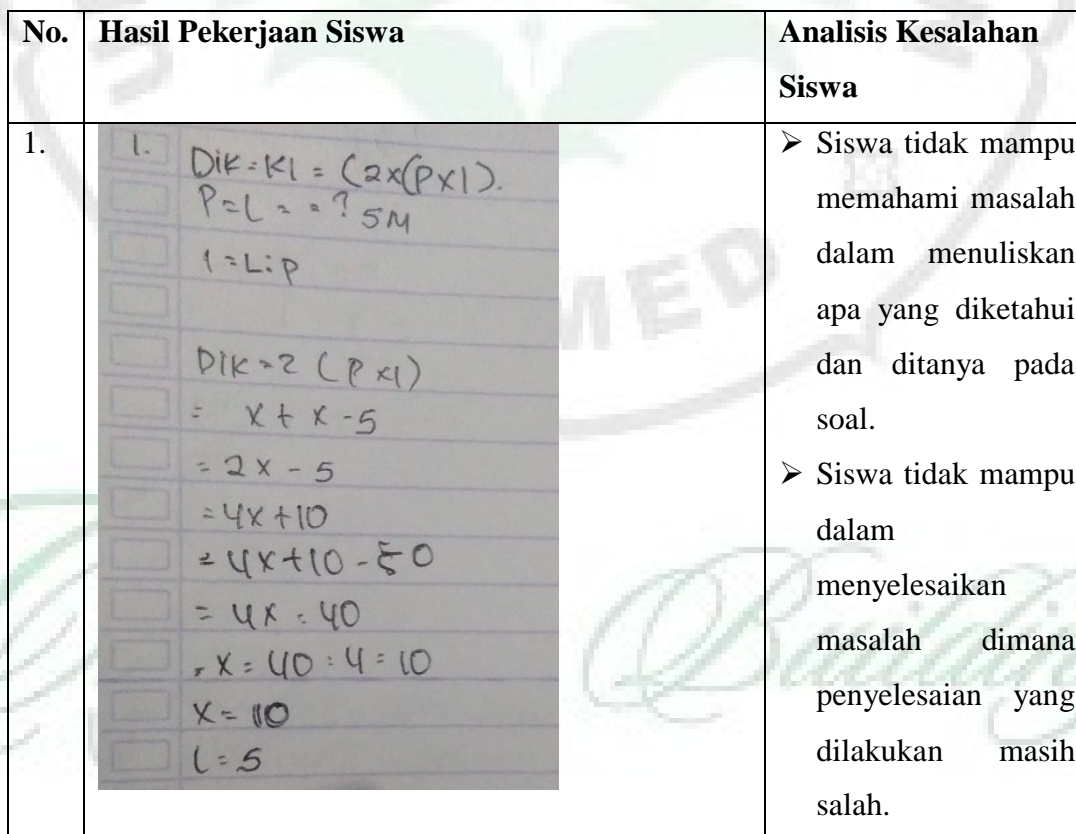 No. Hasil Pekerjaan Siswa Analisis Kesalahan
Siswa
1.
1. Dik = Kl = (2x(Px1).
P=L = = ? 5M
1 = L : P
Dik = 2 (P x1)
= x + x - 5
= 2x - 5
= 4x + 10
= 4x + 10 - 50
= 4x = 40
= x = 40 : 4 = 10
x = 10
l = 5
➢ Siswa tidak mampu
memahami masalah
dalam menuliskan
apa yang diketahui
dan ditanya pada
soal.
➢ Siswa tidak mampu
dalam
menyelesaikan
masalah dimana
penyelesaian yang
dilakukan masih
salah.
MED
Building